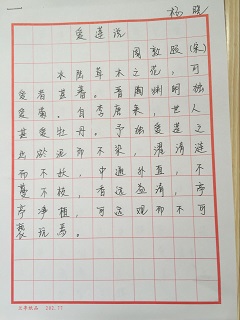 杨
爱莲说
周敦颐(宋)
水陆草木之花,可
爱者甚蕃。晋陶渊明独
爱菊。自李唐来,世人
甚爱牡丹。予独爱莲之
出淤泥而不染,濯清涟
而不妖,中通外直,不
蔓不枝,香远益清,亭
亭净植,可远观而不可
亵玩焉。